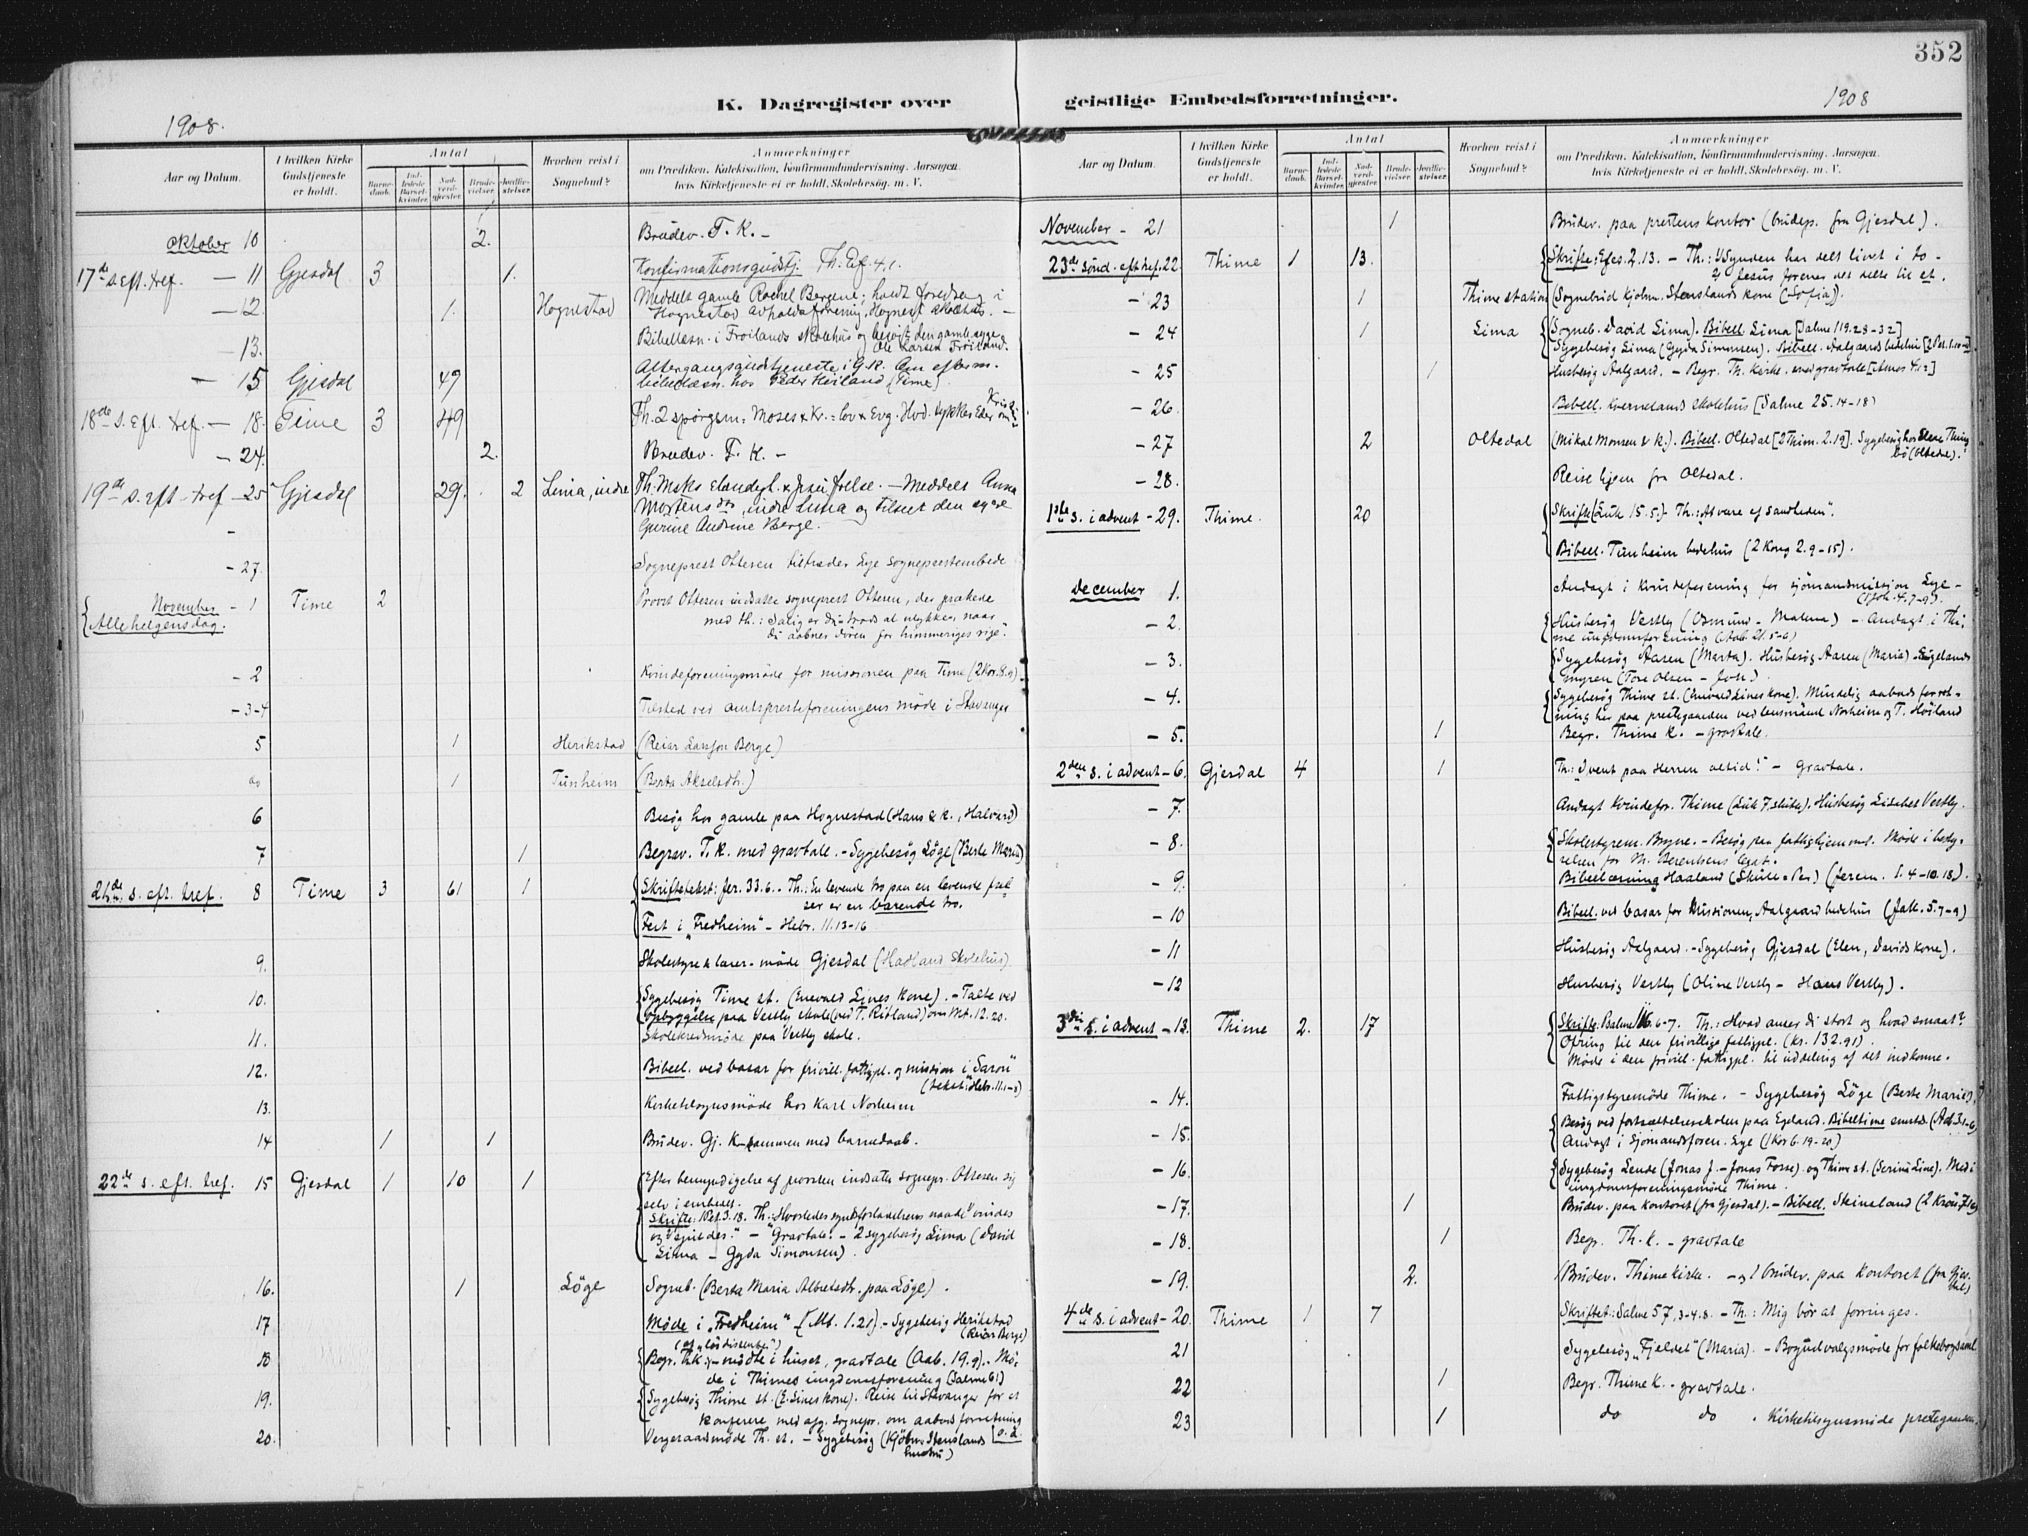 352
K. Dagregister over geistlige Embedsforretninger.
1908.
1908
Aar og Datum.
I hvilken Kirke Gudstjeneste er holdt.
Antal
Barnedaab.
Indledede Barselkvinder.
Nadverdgjester.
Brudevielser.
Jordfæstelser.
Hvorhen reist i Sognebud?
Anmærkninger
om Prædiken, Katekisation, Konfirmandundervisning, Aarsagen,
hvis Kirketjeneste ei er holdt, Skolebesøg, m. V.
oktober 10 2. Brudev. T. K. -
17de s. eft. tref. - 11 Gjesdal 3 1. Konfirmationsgudstj. Th: Ef. 4.1.
- 12 1. Hognestad Meddelt gamle Rachel Bergene; holdt foredrag i
Hognestad avholdsforening, Hognest. skolehus. -
- 13. Bibellesn. i Frøilands skolehus og besøgt den gamle syge
Ole Larsen Frøiland.
- 15 Gjesdal 49 Altergangsgudstjeneste i G. K.
bibellæsn. hos Peder Høiland (Time)
18de s. eft. tref. - 18. Time 3 49 Th. 2 spörgsm: Moses & Kr. = lov & Evg. Hvd. tykkes Eder om Kristi
- 24. 2. Brudev. T. K. -
19de s. eft. tref. - 25 Gjesdal 29. 2 Lima, indre - Meddelt Anna
Mortensdtr, indre Lima og tilseet den syge
Gurine Andrine Berge.
- 27. Sogneprest Ottesen tiltræder Lye sogneprestembede
November - 1 Time 2 Provst Ottesen indsatte sogneprest Ottesen, der prækede
Allehelgensdag. med th.: Salig er di trods al ulykken, naar
di aabner døren for himmeriges rige."
- 2 Kvindeforeningsmøde for missionen paa Time (2 Kor. 8.9).
- 3-4 Tilsted ved amtsprestefoeningens møde i Stavanger
5 1 Herikstad (Reiar Larsson Berge)
do 1 Tunheim (Berta Akselsdtr.)
6 Besøg hos gamle paa Hognestad (Hans & k., Halvard)
7 1 Begrav. T. K. med gravtale. - Sygebesøg Løge (Berte Maria)
21de s. eft. tref. 8 Time 3 61 1 Skriftetekst: Jer. 33.6. - Th.: En levende tro paa en levende frelser
er en bærende tro.
Fest i "Fredheim" - Hebr. 11.13-16
9. Skolestyre & lærer-møde Gjesdal (Haaland skolehus)
10. Sygebesøg Time st. (Enevald Lines kone). - Talte ved
opbyggelse paa Vestly skole (ved T. Ritland) om Mt. 12.20.
11. Skolekredsmøde paa Vestly skole.
12. Bibell. ved basar for frivill. fattigpl. og mission i "Saron"
(tekst: Hebr. 11.1-8)
13. Kirketilsynsmøde hos Karl Norheim
14 1 1 Brudev. Gj. K. sammen med barnedaab.
22de s. eft. tref. 15 Gjesdal 1 10 1 Efter bemyndigelse af provsten indsatte sognepr. Ottesen sig
selv i embedet.
Skrifte: 1 Pet. 3.18. Th.: Hvorledes syndsforladelsens naade vindes
og spildes." - Gravtale. - 2 sygebesøg Lima (David
Lima - Gyda Simonsen).
16. 1 Løge Sogneb. (Berta Maria Abelsdtr. paa Løge).
17 Møde i "Fredheim" (Mt. 1.21). - Sygebesøg Herikstad
(Reiar Berge)
18 Begr. T.K. - mødte i huset, gravtale (Aab. 19.9). Møde
i Thimes ungdomsforening (Salme 61)
19. Sygebesøg Thime st. (E. Lines kone). Reise til Stavanger for at
konferere med afg. sognepr. om aabodsforretning
o. a.
20. Vergeraadsmøde Th. st. - Sygebesøg (Kjøbm. Stenslands
hustru)
November - 21 1 Brudev. paa prestens kontor (brudep. fra Gjesdal).
23de sønd. eft. tref. 22. Thime 1 13. Skrifte: Efes. 2.13. - Th.: Synden har delt livet i to -
Jesus forener det delte til et.
- 23 1 Thime station (Sognebud kjøbm. Stenslands kone (Sofia)).
- 24 1 Lima (Sogneb. David Lima). Bibell. Lima [Salme 119.28-32]
Sygebesøg Lima (Gyda Simonsen). Bibell. Aalgaards bedehus
- 25 1 Husbesøg Aalgaard. - Begr. Th. Kirke. med gravtale [Amos 4.12]
- 26. Bibell. Kvernelands skolehus [Salme 25.14-18]
- 27 2 Oltedal (Mikal Monsen & k.). Bibell. Oltedal [2 Thim. 2.19]. Sygebesøg hos Elene Thingbö
(Oltedal).
- 28. Reise hjem fra Oltedal.
1ste s. i advent - 29. Thime. 20 Skrifte (Luk 15.5) - Th.: "At være af sandheden".
Bibell. Tunheim bedehus (2 Kong 2.9-15).
December 1. Andagt i kvindeforening for sjømandsmission Lye -
(1 Joh. 4.7-9).
- 2. Husbesøg Vestly (Osmund - Malena) - Andagt i Thime
ungdomsforening (Aab. 21.5-6)
- 3. Sygebesøg Aasen (Marta). Husbesøg Aasen (Maria) - Engelandsmyren
(Tore Olsen - Joh.)
- 4. Sygebesøg Thime st. (Enevald Lines kone). Mindelig aabodsforretning
her paa prestegaarden ved lensmænd Norheim og T. Høiland
- 5. 1 Begr. Thime K. - gravtale.
2den s. i advent - 6. Gjesdal 4 1 Th: "I vent paa Herren altid!" - Gravtale.
- 7. Andagt kvindefor. Thime (Luk 7, slutn). Husbesøg Lisabet Vestly.
- 8. Skolestyrem. Bryne. - Besøg paa fattighjemmet. Møde i bestyrelsen
for M. Berentsens legat.
- 9. Bibellæsning Haaland (Skule - Per) (Jerem. 1.4-10.18).
- 10 Bibell. ved basar for Missionen, Aalgaard bedehus (Jak. 5.7-9)
- 11 Husbesøg Aalgaard. - Sygebesøg Gjesdal (Elen, Davids kone).
- 12 Husbesøg Vestly (Oline Vestly - Hans Vestly).
3die s. i advent - 13. Thime 2. 17 Skrifte: Salme 116.6-7. Th.: Hvad anser di stort og hvad smaat?
Ofring til den frivillige fattigpl. (kr. 132.91).
Møde i den frivil. fattigpl. til uddeling af det indkomne.
- 14. Fattigstyremøde Thime. - Sygebesøg Løge (Berte Marie).
- 15. Besøg ved fortsættelsesskolen paa Egeland. Bibeltime smsts.
Andagt i Sjømandsforen. Lye (1 Kor 6.19-20)
- 16. Sygebesøg Lende (Jonas J. - Jonas Fosse) og Thime st. (Serina Line). Med i
ungdomsforeningsmøde Thime.
- 17. 1 Brudev. paa kontoret (fra Gjesdal). - Bibell. Skinsland
- 18. 1 Begr. Th. K. - gravtale
- 19. 2. Brudev. Thime kirke. - og 1 brudev. paa kontoret (fra Gjesdal)
4de s. i advent - 20. Thime 1 7 Skriftet: Salme 57, 3-4.8. - Th.: Mig bør at forringes.
21 Sygebesøg "Fjeldet" (Maria). - Bogudvalgsmøde for folkebogsaml.
22 1 Begr. Thime K. - gravtale.
23 1 do do. Kirketilsynsmøde prestegaarden.